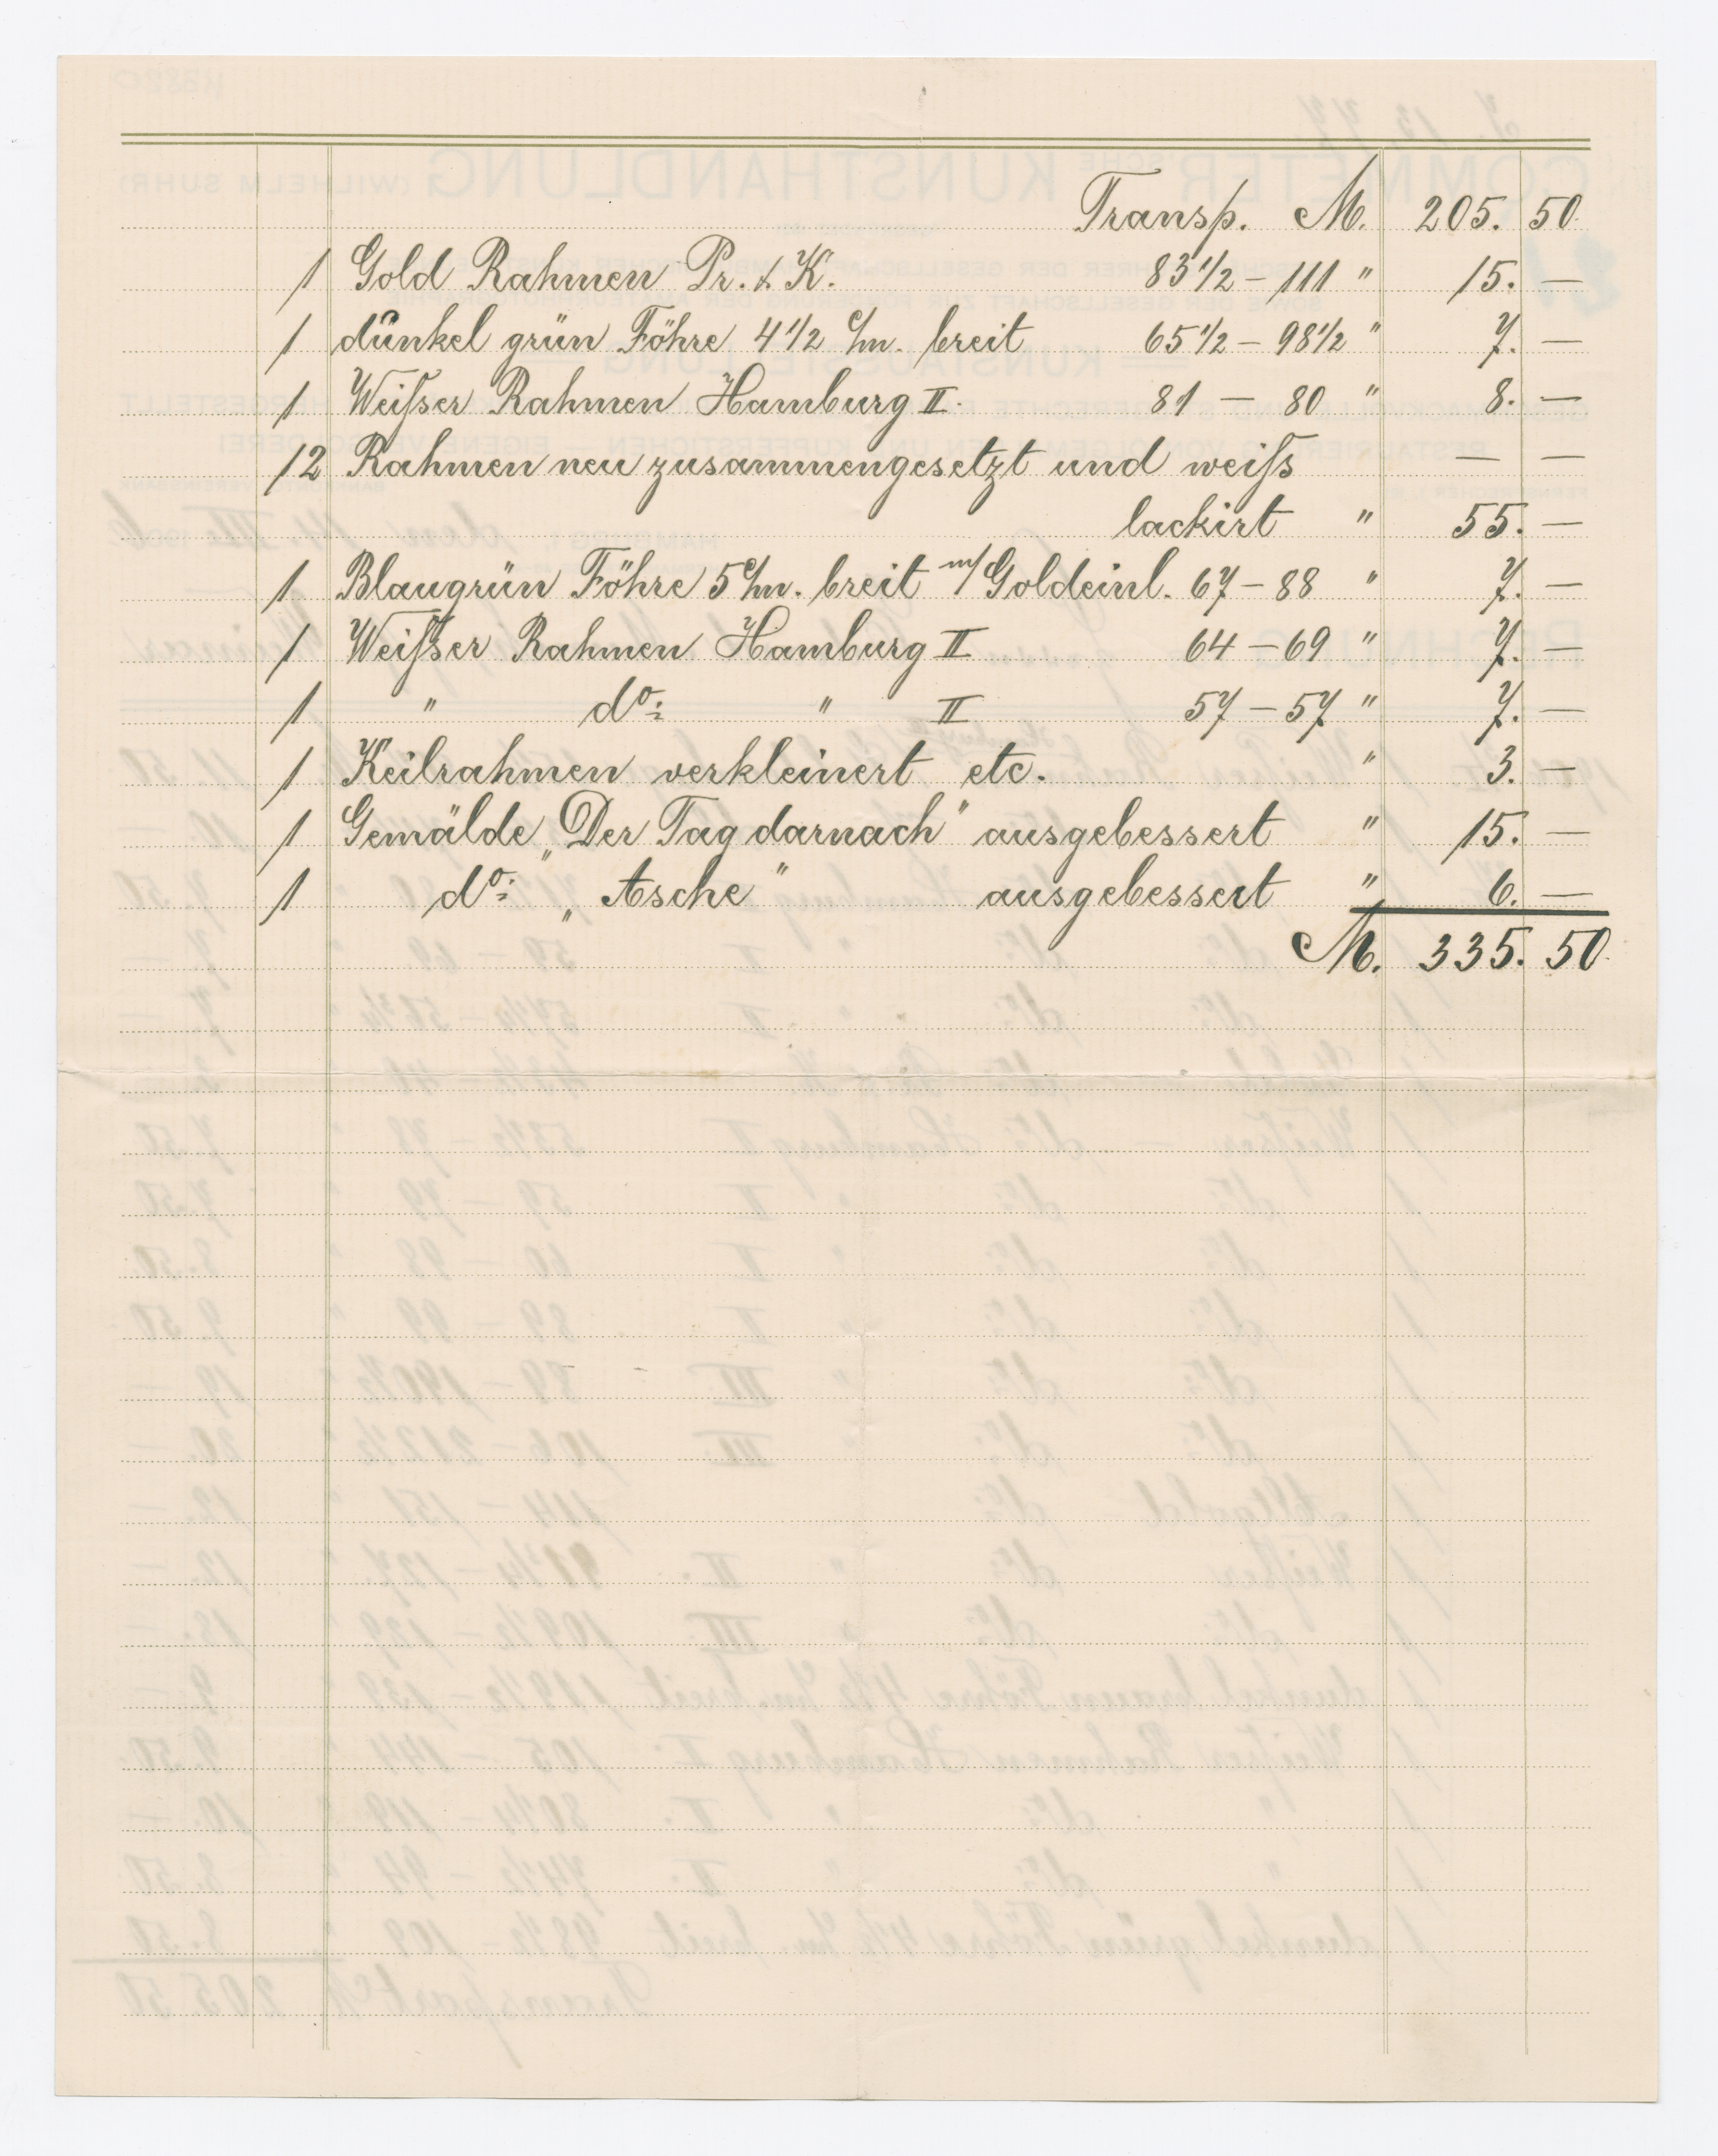 Transp. M. 205. 50
1 Gold Rahmen Pr. & K. 83 1/2 – 111 " 15. —
1 dunkel grün Föhre 4 1/2 c/m. breit 65 1/2 – 98 1/2 " 7. —
1 Weißser Rahmen Hamburg II. 81 – 80 " 8. —
12 Rahmen neu zusammengesetzt und weiß — —
lackirt " 55. —
1 Blaugrün Föhre 5 c/m. breit m/ Goldeinl. 67 – 88 " 7. —
1 Weißser Rahmen Hamburg II 64 – 69 " 7. —
1 " do: " II 57 – 57 " 7. —
1 Keilrahmen verkleinert etc. " 3. —
1 Gemälde „Der Tag darnach" ausgebessert " 15. —
1 do: „Asche" ausgebessert " 6. —
M. 335. 50